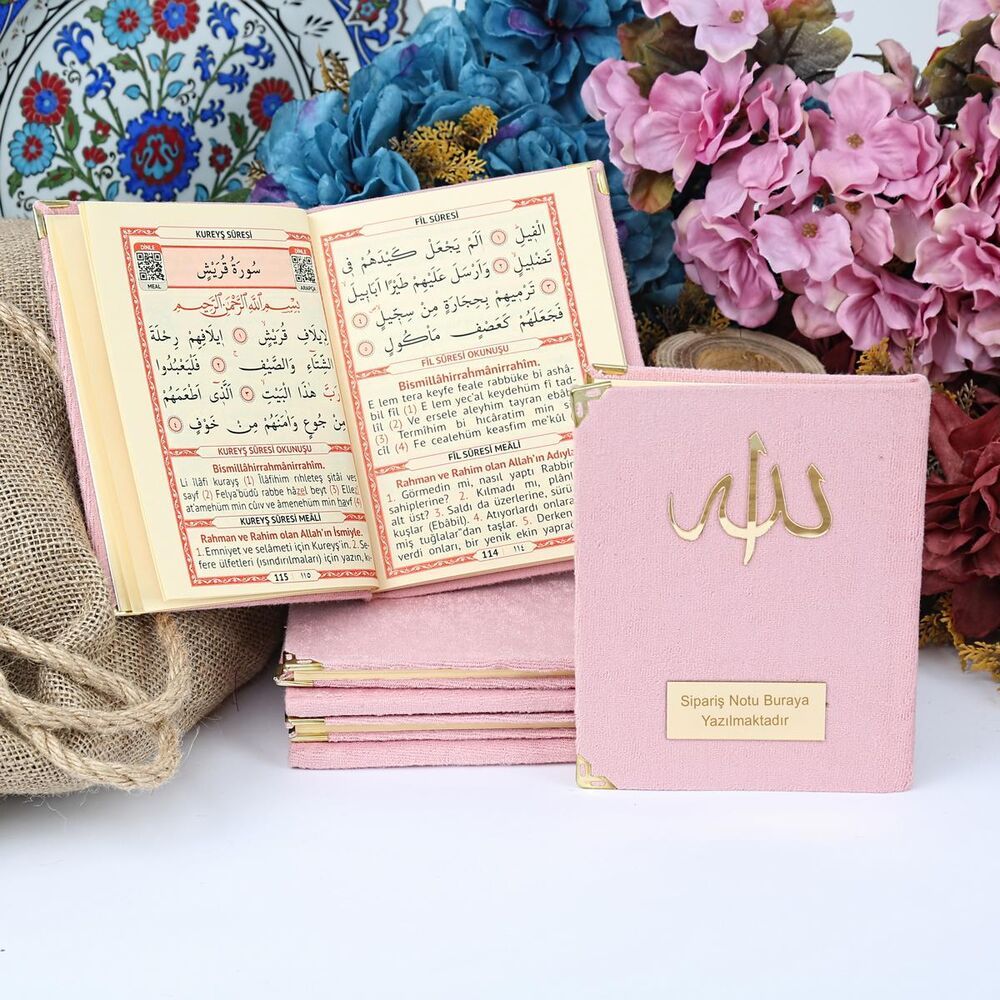 KUREYŞ SÛRESİ
DİNLE
DİNLE
سُورَةُ قُرَيْشٍ
MEAL
ARAPÇA
بِسْمِ اللّٰهِ الرَّحْمٰنِ الرَّحِيمِ
لِإِيلَافِ قُرَيْشٍ ١ اِيلَافِهِمْ رِحْلَةَ
الشِّتَٓاءِ وَالصَّيْفِ ٢ فَلْيَعْبُدُوا
رَبَّ هٰذَا الْبَيْتِ ٣ اَلَّذِٓى اَطْعَمَهُمْ
مِنْ جُوعٍ وَاٰمَنَهُمْ مِنْ خَوْفٍ ٤
KUREYŞ SÛRESİ OKUNUŞU
Bismillâhirrahmânirrahîm.
Li îlâfi kurayş (1) Îlâfihim rihleteş şitâi ves
sayf (2) Felya'büdû rabbe hâzel beyt (3) Ellez
at'amehüm min cûıv ve âmenehüm min havf (4)
KUREYŞ SÛRESİ MEÂLİ
Rahman ve Rahim olan Allah'ın İsmiyle.
1. Emniyet ve selâmeti için Kureyş'in. 2. Se-
fere ülfetleri (ısındırılmaları) için yazın, kı
115 ١١٥
FİL SÛRESİ
الْفٖيلِ ١ اَلَمْ يَجْعَلْ كَيْدَهُمْ فٖى
تَضْلٖيلٍ ٢ وَاَرْسَلَ عَلَيْهِمْ طَيْرًا اَبَابٖيلَ
٣ تَرْمٖيهِمْ بِحِجَارَةٍ مِنْ سِجّٖيلٍ ٤
فَجَعَلَهُمْ كَعَصْفٍ مَأْكُولٍ ٥
FİL SÛRESİ OKUNUŞU
Bismillâhirrahmânirrahîm.
E lem tera keyfe feale rabbüke bi ashâ-
bil fîl (1) E lem yec'al keydehüm fî tad
(2) Ve ersele aleyhim tayran ebâb
(3) Termîhim bi hıcâratim min s
cîl (4) Fe cealehüm keasfim me'kûl
FİL SÛRESİ MEÂLİ
Rahman ve Rahim olan Allah'ın Adıyla
1. Görmedin mi, nasıl yaptı Rabbin
sahiplerine? 2. Kılmadı mı, plânl
alt üst? 3. Saldı da üzerlerine, sürü
kuşlar (Ebâbil). 4. Atıyorlardı onlara
miş tuğlalar'dan taşlar. 5. Derken
verdi onları, bir yenik ekin yaprağ
114 ١١٤
الله
Sipariş Notu Buraya
Yazılmaktadır